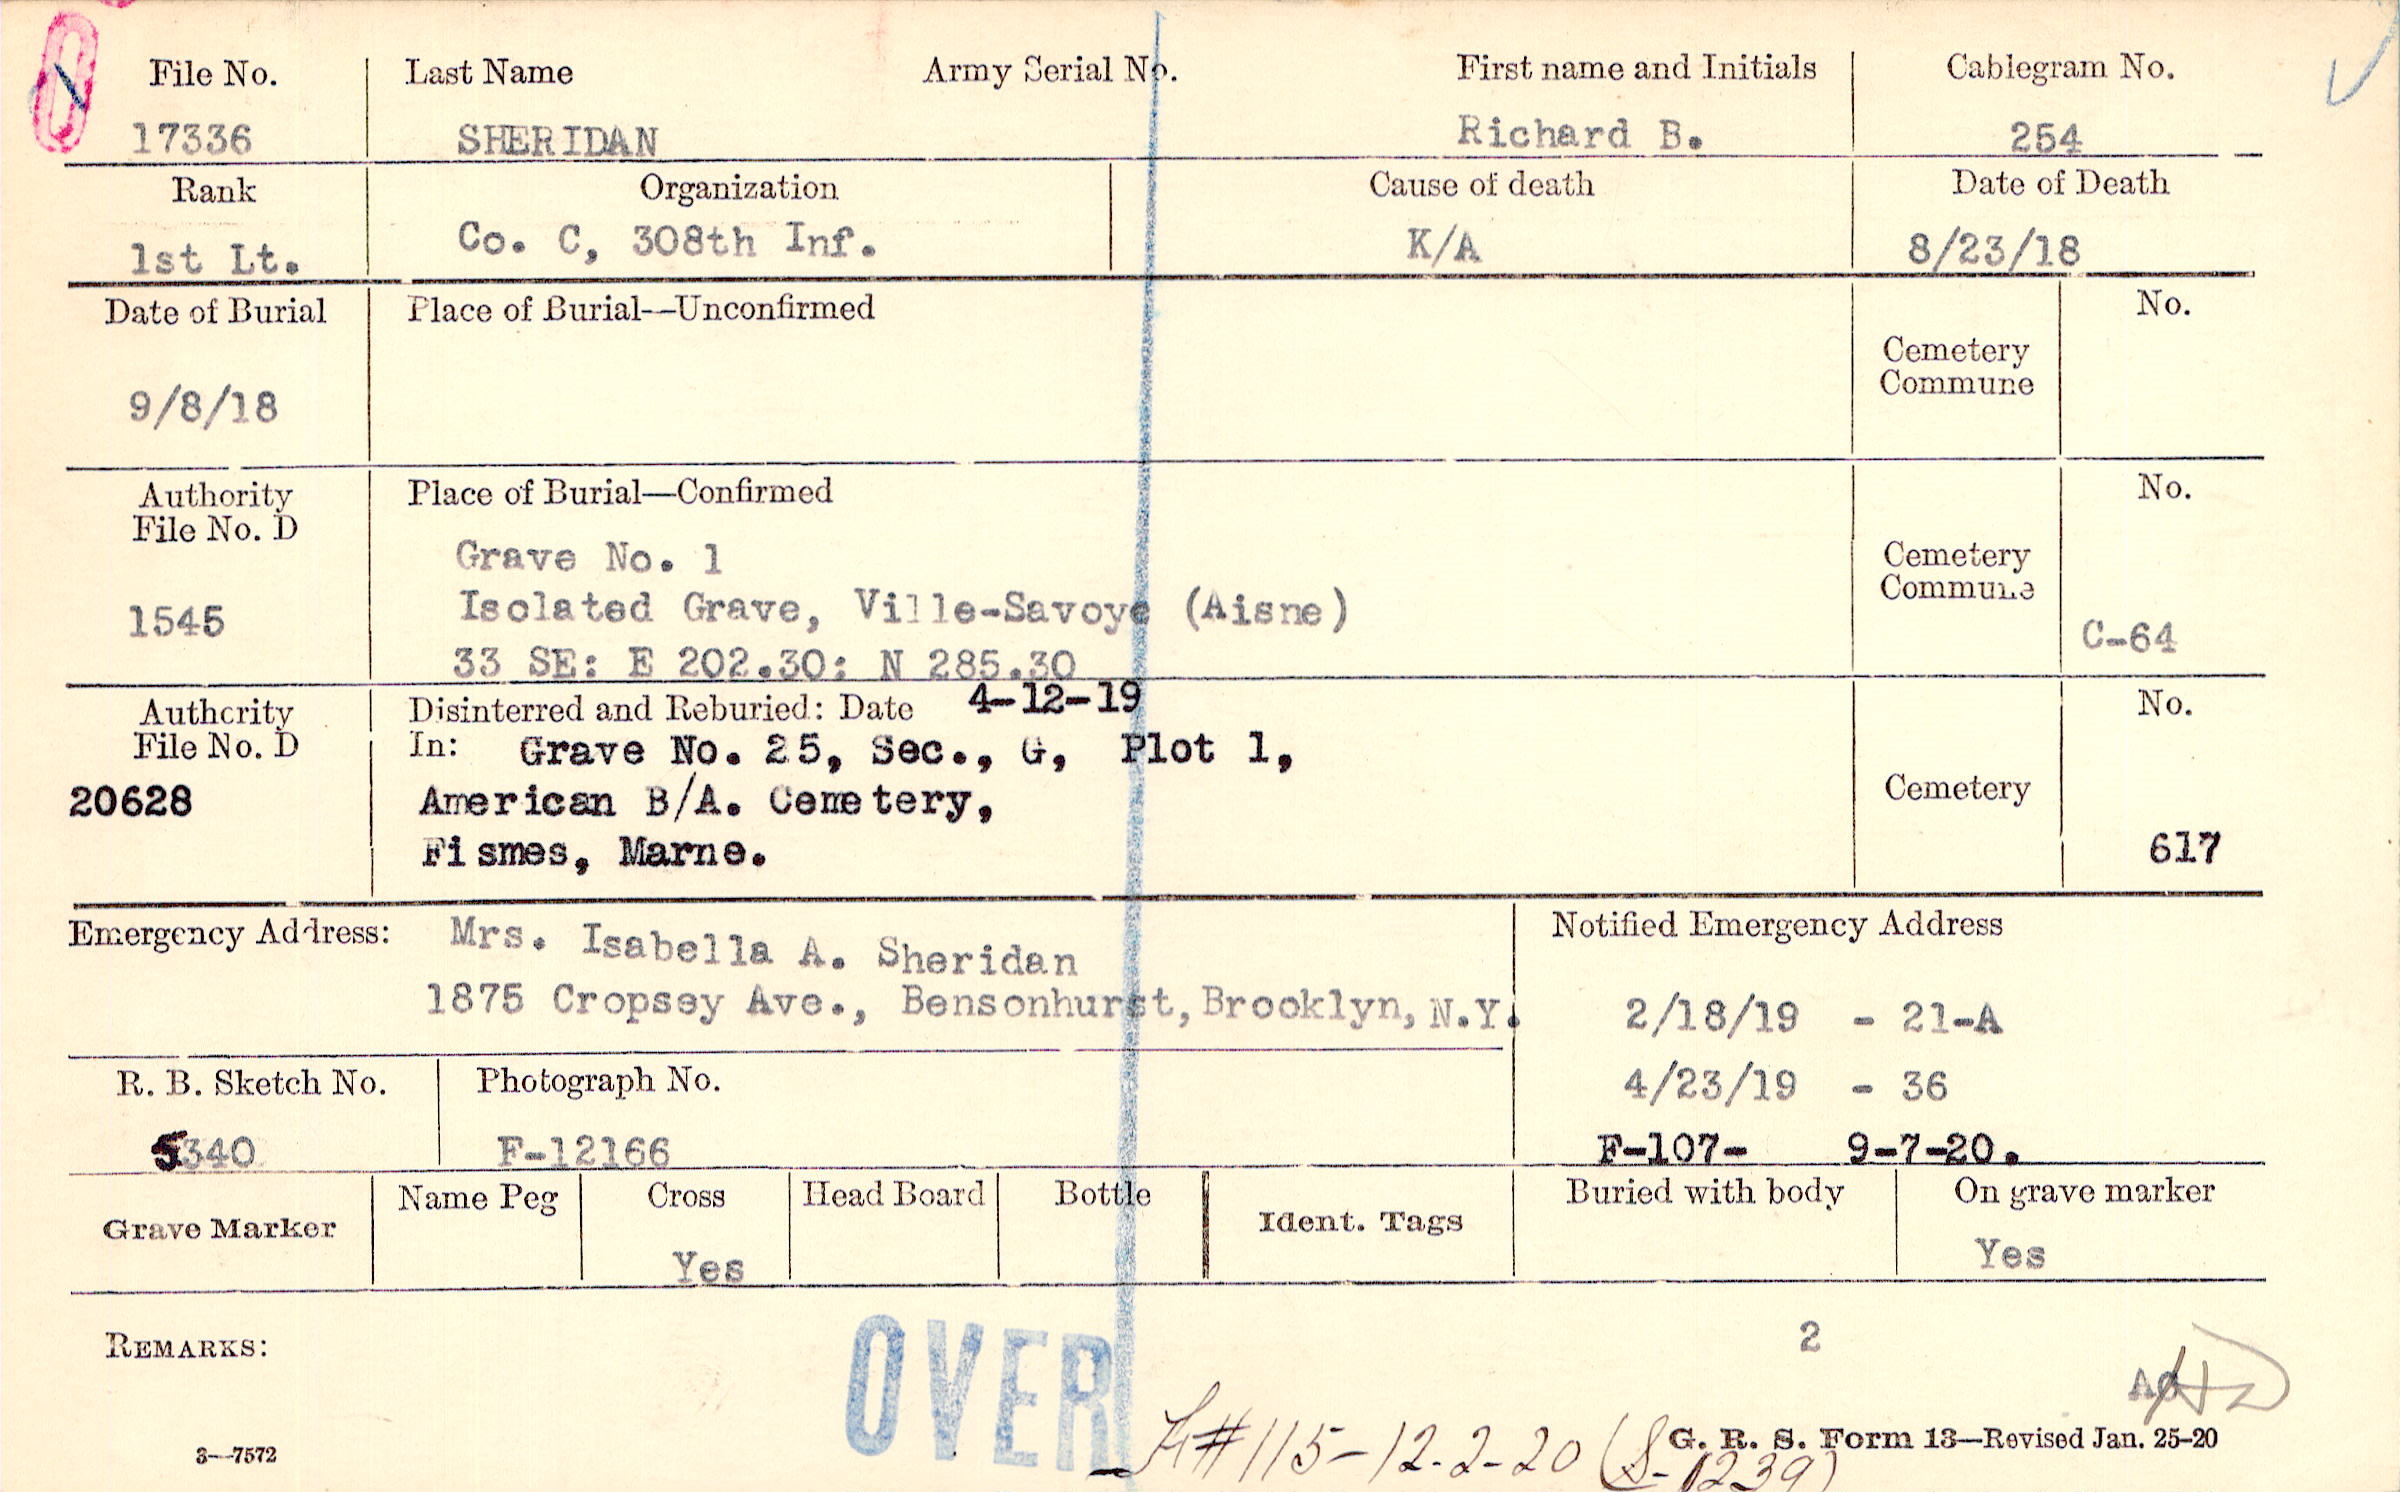 File No. Last Name Army Serial No. First name and Initials Cablegram No.
17336 SHERIDAN Richard B. 254
Rank Organization Cause of death Date of Death
1st Lt. Co. C, 308th Inf. K/A 8/23/18
Date of Burial Place of Burial—Unconfirmed No.
Cemetery
Commune
9/8/18
Authority Place of Burial—Confirmed No.
File No. D
Grave No. 1 Cemetery
1545 Isolated Grave, Ville-Savoye (Aisne) Commune
33 SE: E 202.30: N 285.30 C-64
Authority Disinterred and Reburied: Date 4-12-19 No.
File No. D In: Grave No. 25, Sec., G, Plot 1,
20628 American B/A. Cemetery, Cemetery
Fismes, Marne. 617
Emergency Address: Mrs. Isabella A. Sheridan Notified Emergency Address
1875 Cropsey Ave., Bensonhurst, Brooklyn, N.Y. 2/18/19 - 21-A
R. B. Sketch No. Photograph No. 4/23/19 - 36
5340 F-12166 F-107- 9-7-20.
Grave Marker Name Peg Cross Head Board Bottle Ident. Tags Buried with body On grave marker
Yes Yes
REMARKS: OVER 2
#115-12-2-20 (S-1239)
3—7572 G. R. S. Form 13—Revised Jan. 25-20